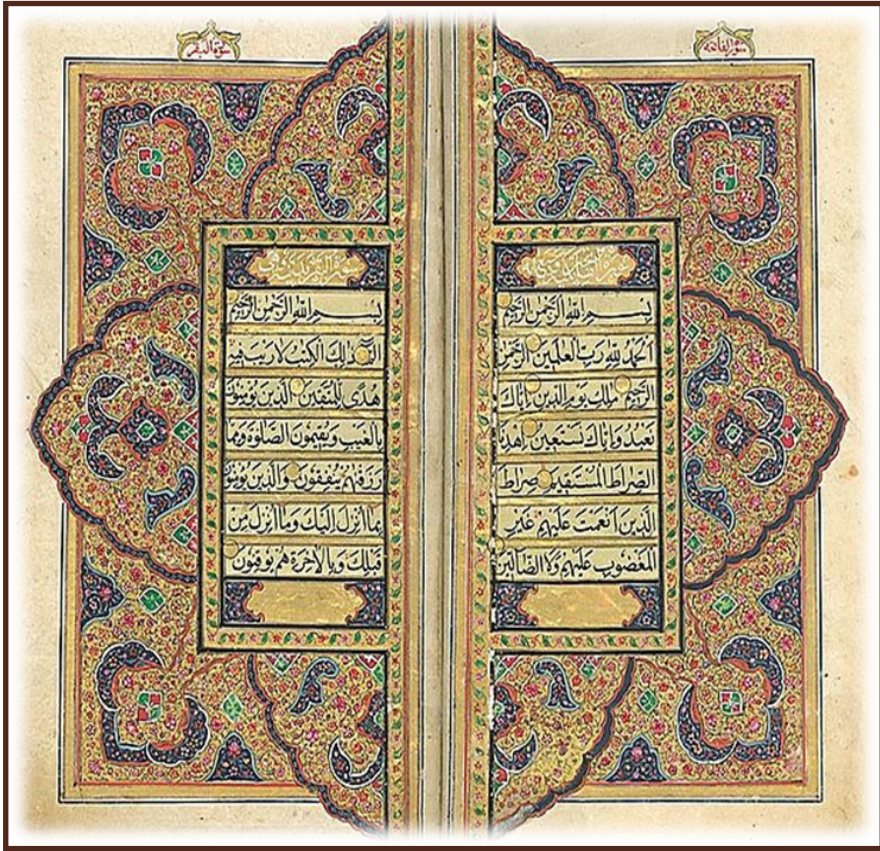 سورة الفاتحة
بِسْمِ اللهِ الرَّحْمٰنِ الرَّحِيْمِ
اَلْحَمْدُ لِلّٰهِ رَبِّ الْعٰلَمِيْنَ الرَّحْمٰنِ
الرَّحِيْمِ مٰلِكِ يَوْمِ الدِّيْنِ اِيَّاكَ
نَعْبُدُ وَاِيَّاكَ نَسْتَعِيْنُ اِهْدِنَا
الصِّرَاطَ الْمُسْتَقِيْمَ صِرَاطَ
الَّذِيْنَ اَنْعَمْتَ عَلَيْهِمْ غَيْرِ
الْمَغْضُوْبِ عَلَيْهِمْ وَلَا الضَّالِّيْنَ
سورة البقر
بِسْمِ اللهِ الرَّحْمٰنِ الرَّحِيْمِ
الٓمّٓ ذٰلِكَ الْكِتٰبُ لَا رَيْبَ فِيْهِ
هُدًى لِلْمُتَّقِيْنَ الَّذِيْنَ يُؤْمِنُوْنَ
بِالْغَيْبِ وَيُقِيْمُوْنَ الصَّلٰوةَ وَمِمَّا
رَزَقْنٰهُمْ يُنْفِقُوْنَ وَالَّذِيْنَ يُؤْمِنُوْنَ
بِمَا اُنْزِلَ اِلَيْكَ وَمَا اُنْزِلَ مِنْ
قَبْلِكَ وَبِالْاٰخِرَةِ هُمْ يُوْقِنُوْنَ